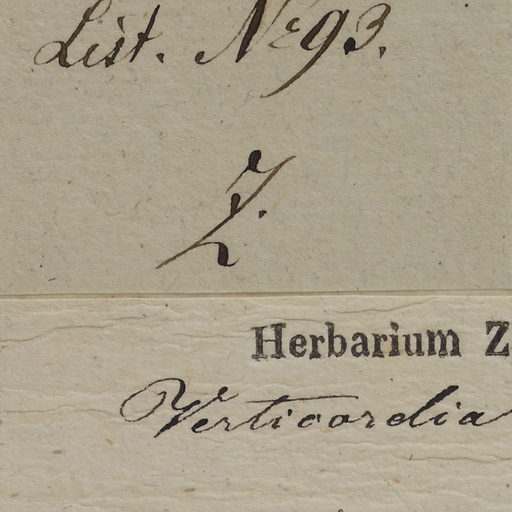 List. No 93.
Z.
Herbarium Z
Verticordia